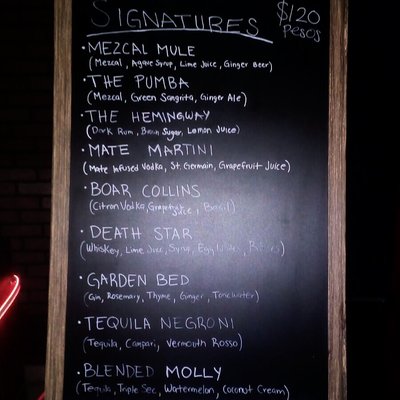 SIGNATURES
$120
Pesos
· MEZCAL MULE
(Mezcal, Agave Syrup, Lime Juice, Ginger Beer)
· THE PUMBA
(Mezcal, Green Sangrita, Ginger Ale)
· THE HEMINGWAY
(Dark Rum, Brown Sugar, Lemon Juice)
· MATE MARTINI
(Mate Infused Vodka, St. Germain, Grapefruit Juice)
· BOAR COLLINS
(Citron Vodka, Grapefruit Juice, Basil)
· DEATH STAR
(Whiskey, Lime Juice, Syrup, Egg White, Bitters)
· GARDEN BED
(Gin, Rosemary, Thyme, Ginger, Tonic Water)
· TEQUILA NEGRONI
(Tequila, Campari, Vermouth Rosso)
· BLENDED MOLLY
(Tequila, Triple Sec, Watermelon, Coconut Cream)